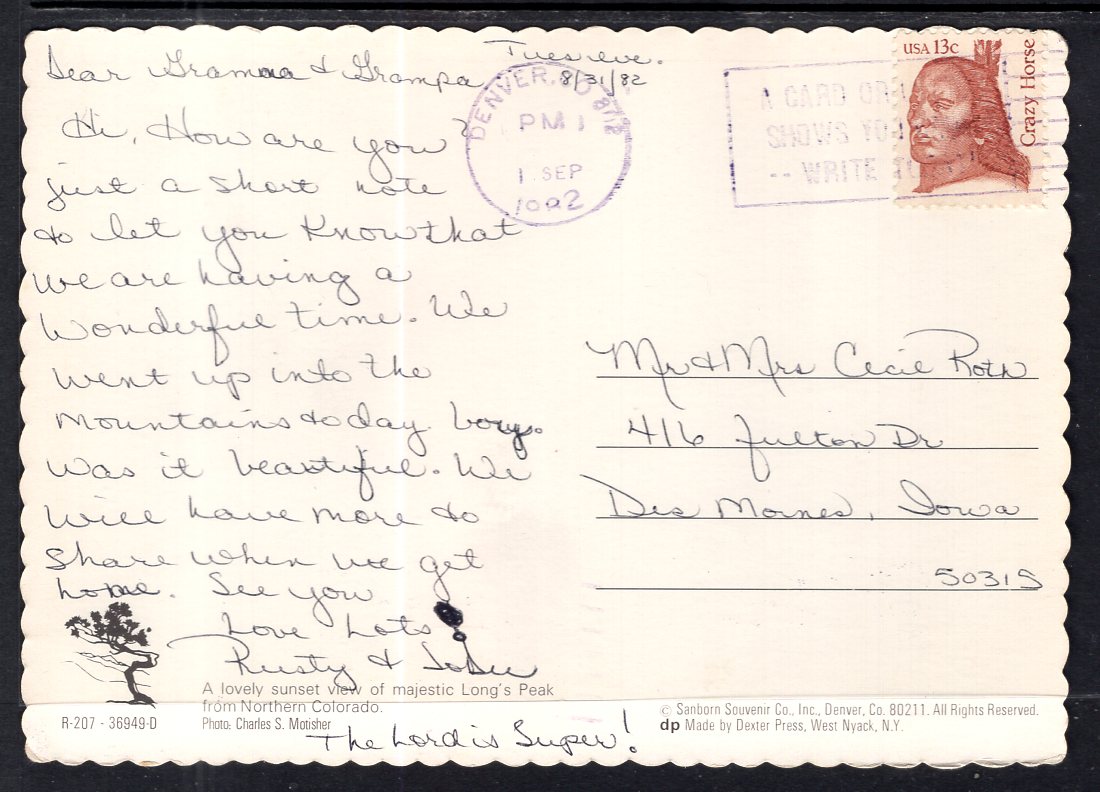 Tues eve.
8/31/82
Dear Gramma & Grampa
Hi, How are you?
just a short note
to let you know that
we are having a
wonderful time. We
went up into the
mountains today boy.
was it beautiful. We
will have more to
share when we get
home. See you
Love Lots
Rusty &
The Lord is Super!
A lovely sunset view of majestic Long's Peak
from Northern Colorado.
R-207 - 36949-D
Photo: Charles S. Motisher
DENVER, CO
PM 1
1 SEP
A CARD OR
SHOWS YO
-- WRITE
USA 13c
Crazy Horse
Mr & Mrs Cecil Roth
416 Fulton Dr
Des Moines, Iowa
50315
© Sanborn Souvenir Co., Inc., Denver, Co. 80211. All Rights Reserved.
dp Made by Dexter Press, West Nyack, N.Y.